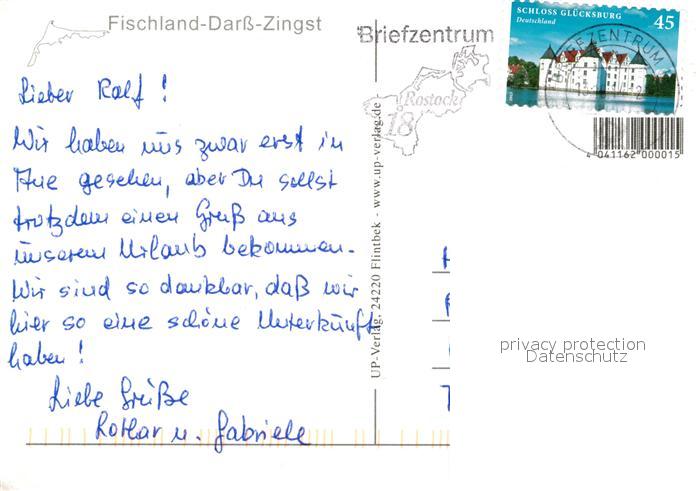 Fischland-Darß-Zingst
Briefzentrum
Rostock
18
SCHLOSS GLÜCKSBURG
Deutschland
45
BRIEFZENTRUM
4 041162 000015
Lieber Ralf!
Wir haben uns zwar erst in
Aue gesehen, aber Du sollst
trotzdem einen Gruß aus
unserem Urlaub bekommen.
Wir sind so dankbar, daß wir
hier so eine schöne Unterkunft
haben!
Liebe Grüße
Lothar u. Gabriele
UP-Verlag, 24220 Flintbek - www.up-verlag.de
privacy protection
Datenschutz